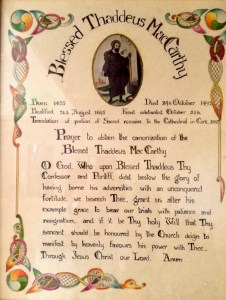 Blessed Thaddeus MacCarthy
Born 1455 Died 24th October 1492
Beatified 26th August 1895 First celebrated October 25th
Translation of portion of Sacred remains to the Cathedral in Cork,
Prayer to obtain the canonization of the
Blessed Thaddeus MacCarthy
O God, Who upon Blessed Thaddeus Thy
Confessor and Pontiff, didst bestow the glory of
having borne his adversities with an unconquered
fortitude, we beseech Thee, grant us after his
example grace to bear our trials with patience and
resignation, and if it be Thy holy Will that Thy
servant should be honoured by the Church deign to
manifest by heavenly favours his power with Thee.
Through Jesus Christ our Lord. Amen